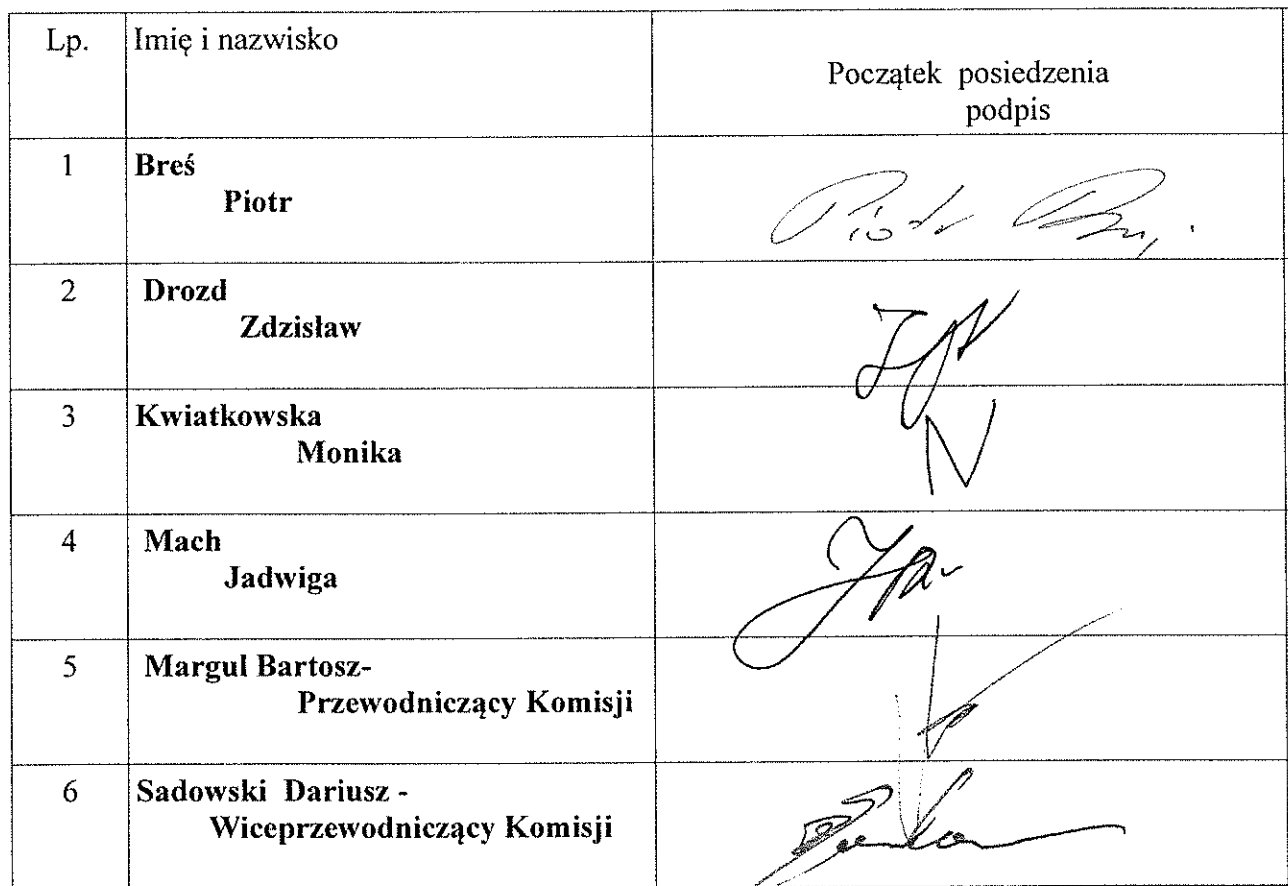 Lp.
Imię i nazwisko
Początek posiedzenia
podpis
1
Breś
Piotr
Piotr
2
Drozd
Zdzisław
3
Kwiatkowska
Monika
4
Mach
Jadwiga
5
Margul Bartosz-
Przewodniczący Komisji
6
Sadowski Dariusz -
Wiceprzewodniczący Komisji